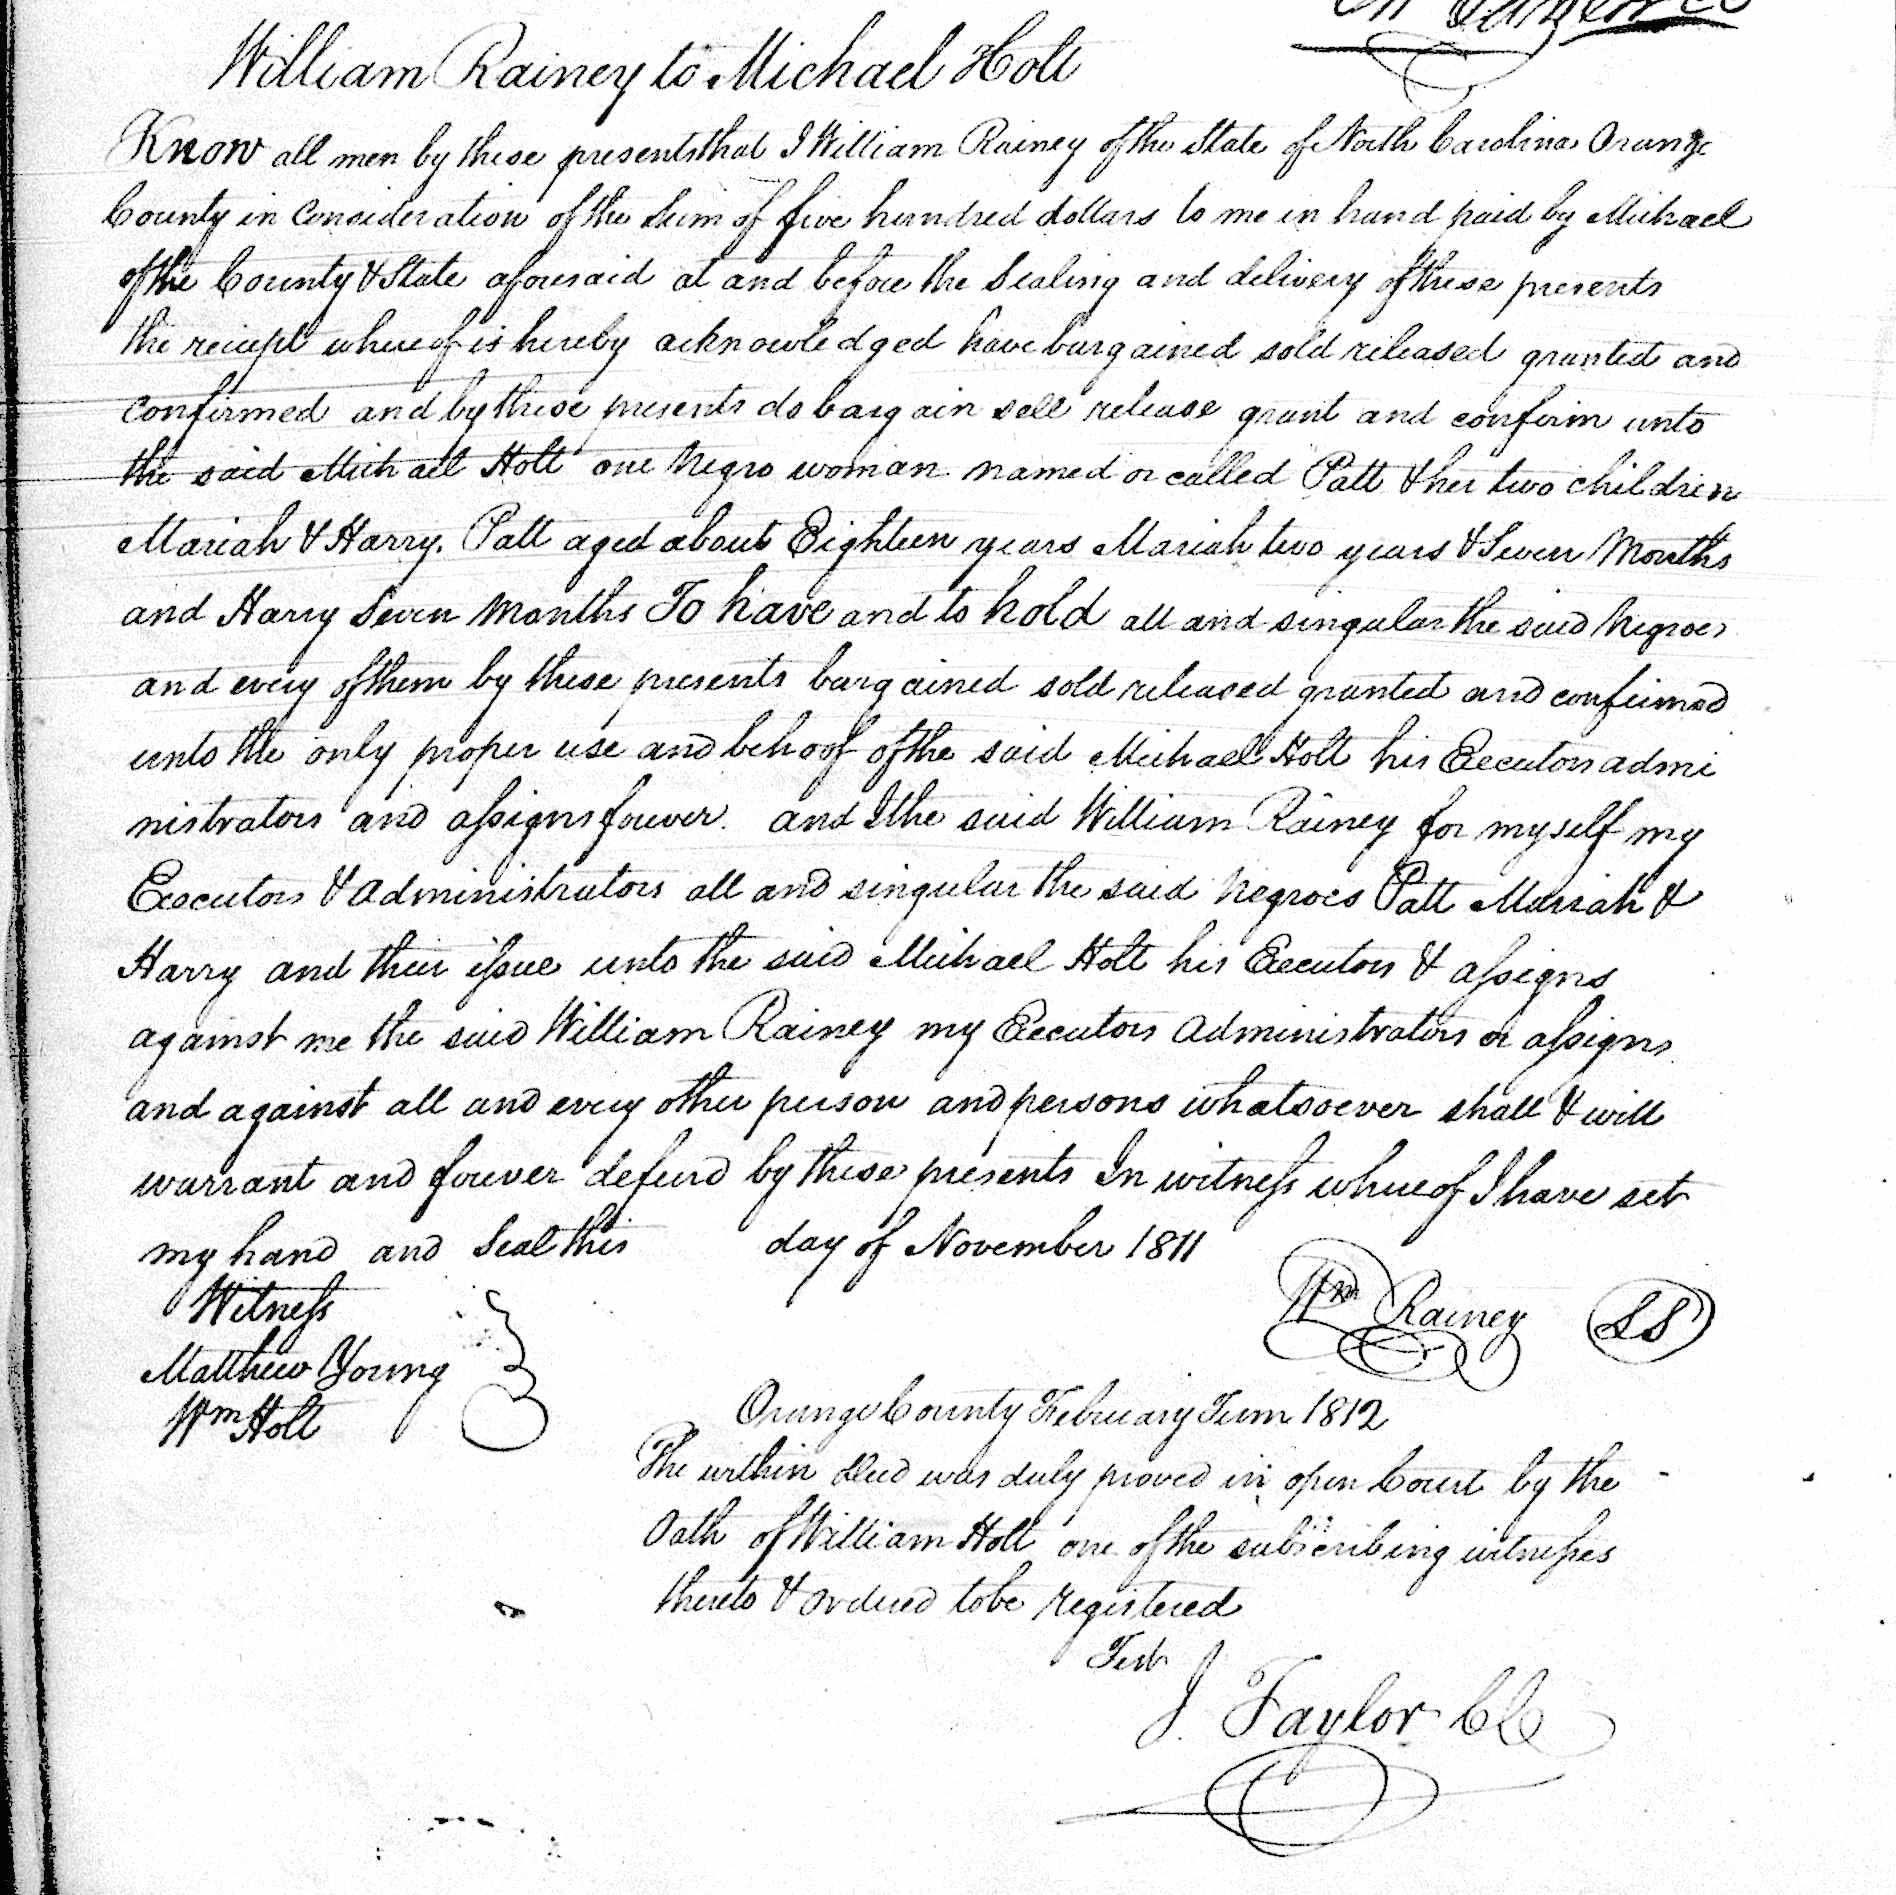 William Rainey to Michael Holt
Know all men by these presents that I William Rainey of the State of North Carolina Orange
County in Consideration of the Sum of five hundred dollars to me in hand paid by Michael
of the County & State aforesaid at and before the Sealing and delivery of these presents
the reciept whereof is hereby acknowledged have bargained sold released granted and
confirmed and by these presents do bargain sell release grant and confirm unto
the said Michael Holt one Negro woman named or called Patt & her two children
Mariah & Harry. Patt aged about Eighteen years Mariah two years & Seven Months
and Harry Seven Months To have and to hold all and singular the said Negroes
and every of them by these presents bargained sold released granted and confirmed
unto the only proper use and behoof of the said Michael Holt his Executors admi
nistrators and assigns forever. and I the said William Rainey for myself my
Executors & administrators all and singular the said Negroes Patt Mariah &
Harry and their issue unto the said Michael Holt his Executors & assigns
against me the said William Rainey my Executors administrators or assigns
and against all and every other person and persons whatsoever shall & will
warrant and forever defend by these presents In witness whereof I have set
my hand and Seal this day of November 1811
Wm Rainey SS
Witness
Matthew Young
Wm Holt
Orange County February Term 1812
The within deed was duly proved in open Court by the
Oath of William Holt one of the subscribing witnesses
thereto & ordered to be registered
Test
J. Taylor CC